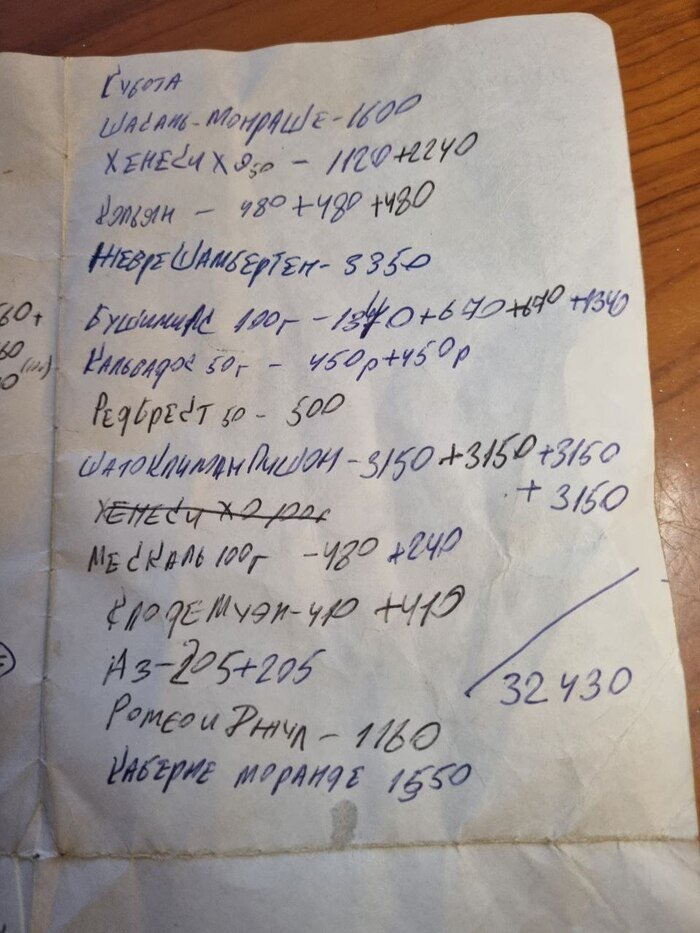 Субота
Шасань-Монраше-1600
Хенеси ХО 50 - 1120+2240
Кальян - 480+480+480
ЖевреШамбертен-3350
Бушмилс 100г -1340+670+670+1340
Кальвадос 50г - 450р+450р
Редбрест 50 - 500
ШатоКлиманПишон-3150+3150+3150
+3150
Хенеси ХО 100г
Мескаль 100г -480+240
КлоДеМуэп-410+410
Аз-205+205
32430
Ромео и Джул - 1160
Каберне моранде 1550
60+
60